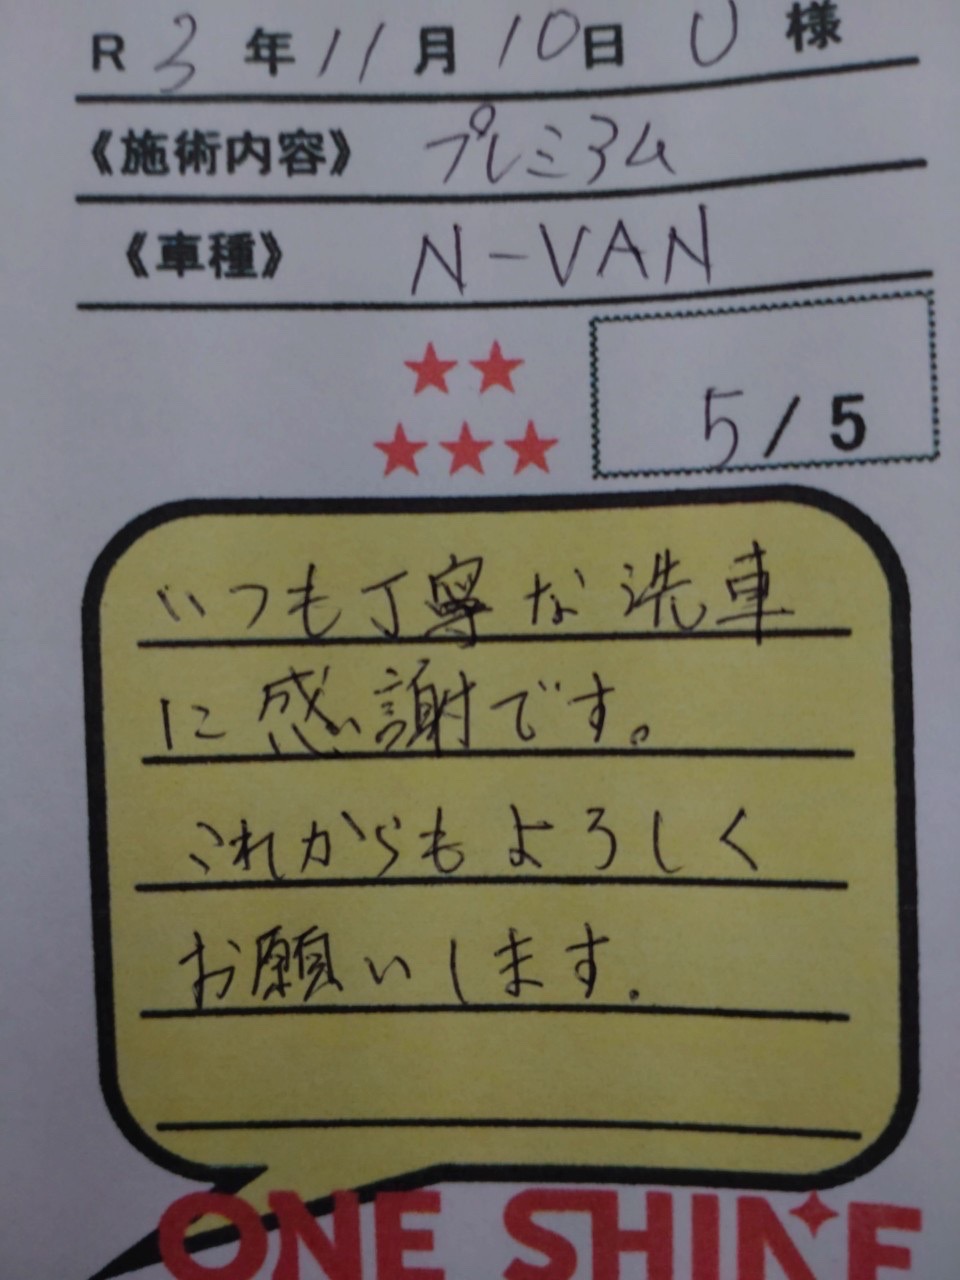 R 3 年 11 月 10 日 U 様
《施術内容》 プレミアム
《車種》 N-VAN
★★
★★★ 5/5
いつも丁寧な洗車
に感謝です。
これからもよろしく
お願いします。
ONE SHINE